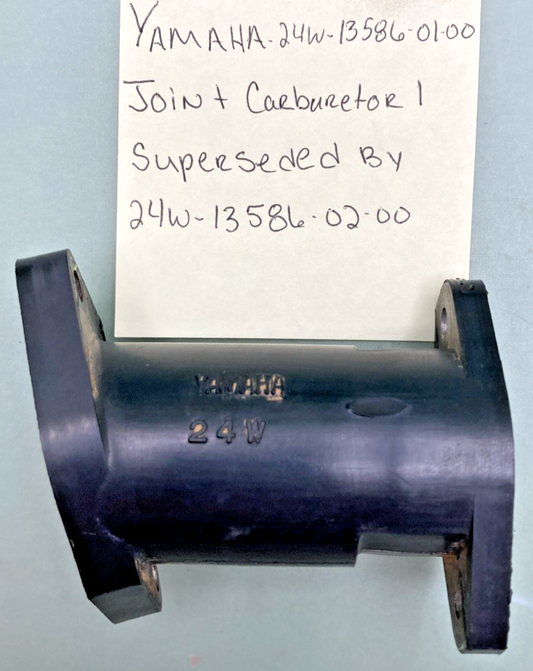 YAMAHA-24W-13586-01-00
Joint Carburetor 1
Superseded By
24W-13586-02-00
YAMAHA
24W